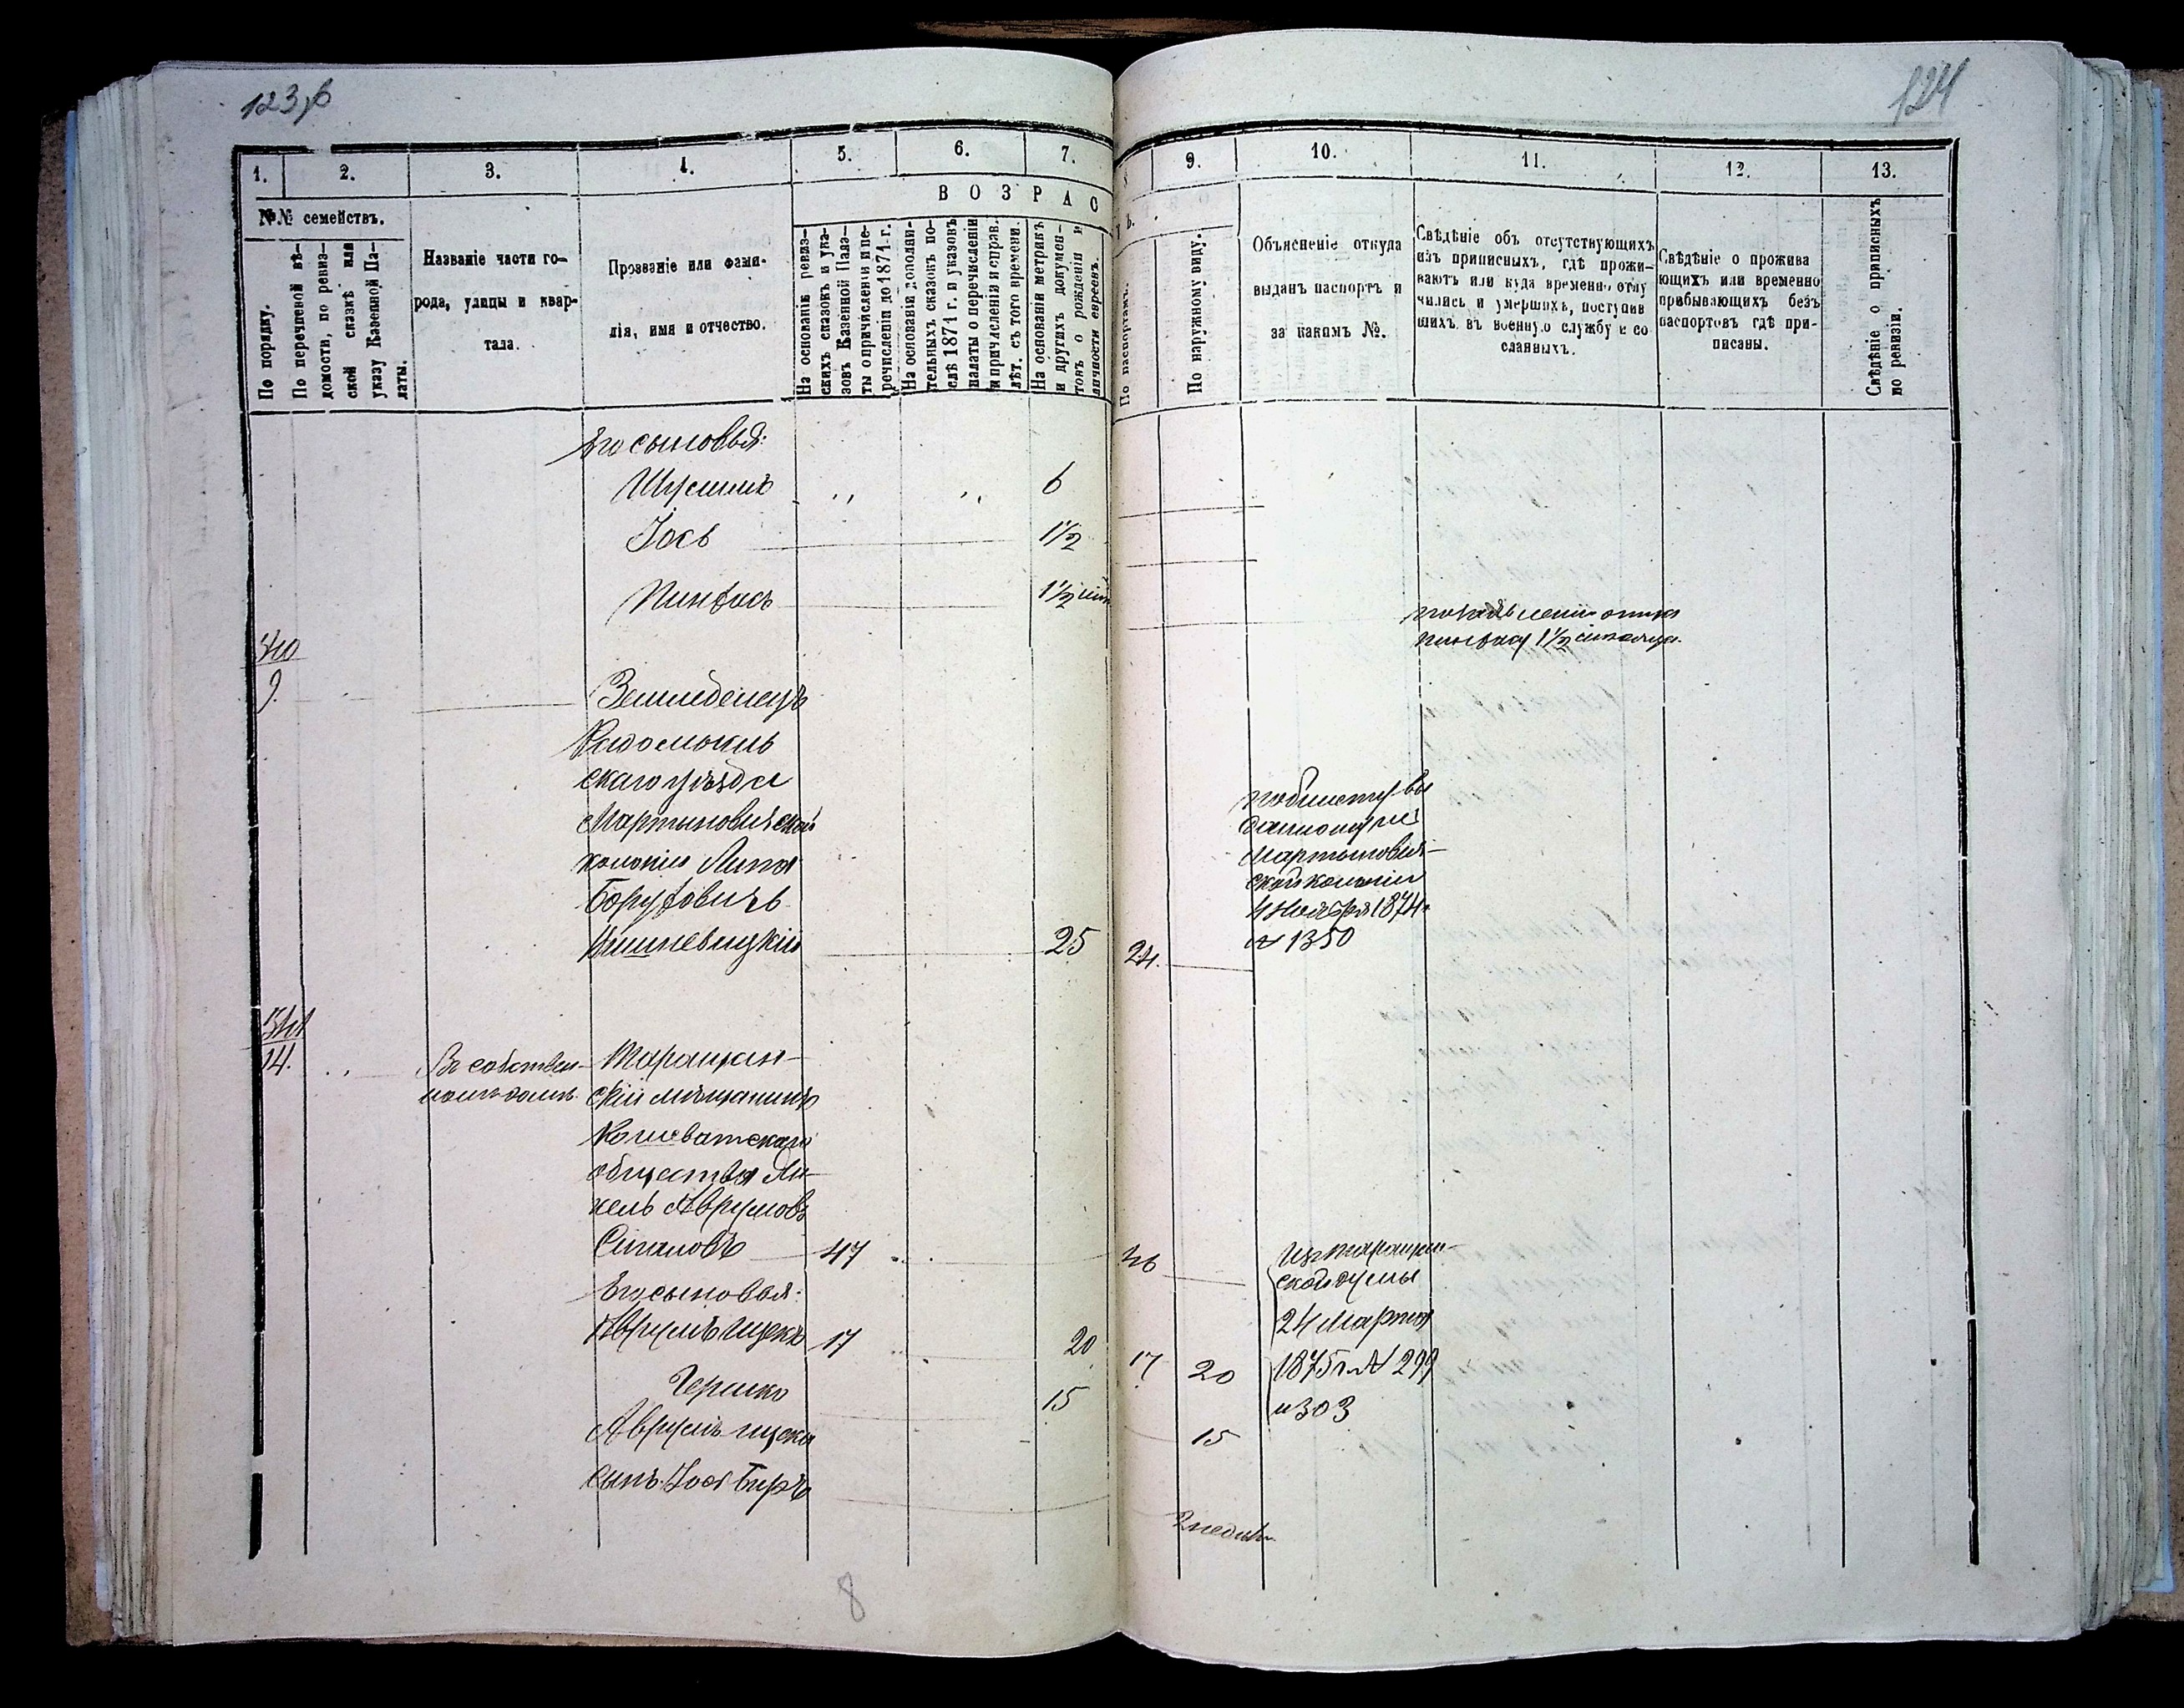 123 об
124
1.
2.
3.
4.
5.
6.
7.
9.
10.
11.
12.
13.
В О З Р А С
Т Ъ.
№№ семействъ.
По порядку.
По перечневой вѣ-
домости, по ревиз-
ской сказкѣ или
указу Казенной Па-
латы.
Названіе части го-
рода, улицы и квар-
тала.
Прозваніе или фами-
лія, имя и отчество.
На основаніи ревиз-
скихъ сказокъ и ука-
зовъ Казенной Пала-
ты о причисленіи и пе-
речисленіи до 1871 г.
На основаніи дополни-
тельныхъ сказокъ по-
слѣ 1871 г. и указовъ
палаты о перечисленіи
и причисленіи и справ.
лѣт. съ того времени.
На основаніи метрикъ
и другихъ докумен-
товъ о рожденіи и
личности евреевъ.
По паспортамъ.
По наружному виду.
Объясненіе откуда
выданъ паспортъ и
за какимъ №.
Свѣдѣніе объ отсутствующихъ
изъ приписныхъ, гдѣ прожи-
ваютъ или куда временно отлу
чились и умершихъ, поступив
шихъ въ военную службу и со
сланныхъ.
Свѣдѣніе о прожива
ющихъ или временно
прибывающихъ безъ
паспортовъ гдѣ при-
писаны.
Свѣдѣніе о приписныхъ
по ревизіи.
Его сыновья:
Шулимъ " " 6
Іось 1 1/2
Пинхасъ 1 1/2
Пинхасу 1 1/2 мѣсяца.
340
9.
Земледелецъ
Радомысль
скаго уѣзда
Мартыновичской
колоніи Липа
Боруховичъ
Вишневицкій 25 24.
по билету вы
данному изъ
Мартынович-
ской колоніи
4 Ноября 1874 г
№ 1350
341
14.
Въ собствен-
номъ домѣ.
Таращан-
скій мѣщанинъ
Кошеватскаго
общества Ан-
хель Аврумовъ
Сигаловъ 47 46
Его сыновья:
Аврумъ Ицекъ 17 20 17 20
Гершко 15 15
Аврумъ Ицека
сынъ Іось Беръ 2 недѣли
Изъ Таращан-
ской думы
24 Марта
1875 г. № 299
и 303
8